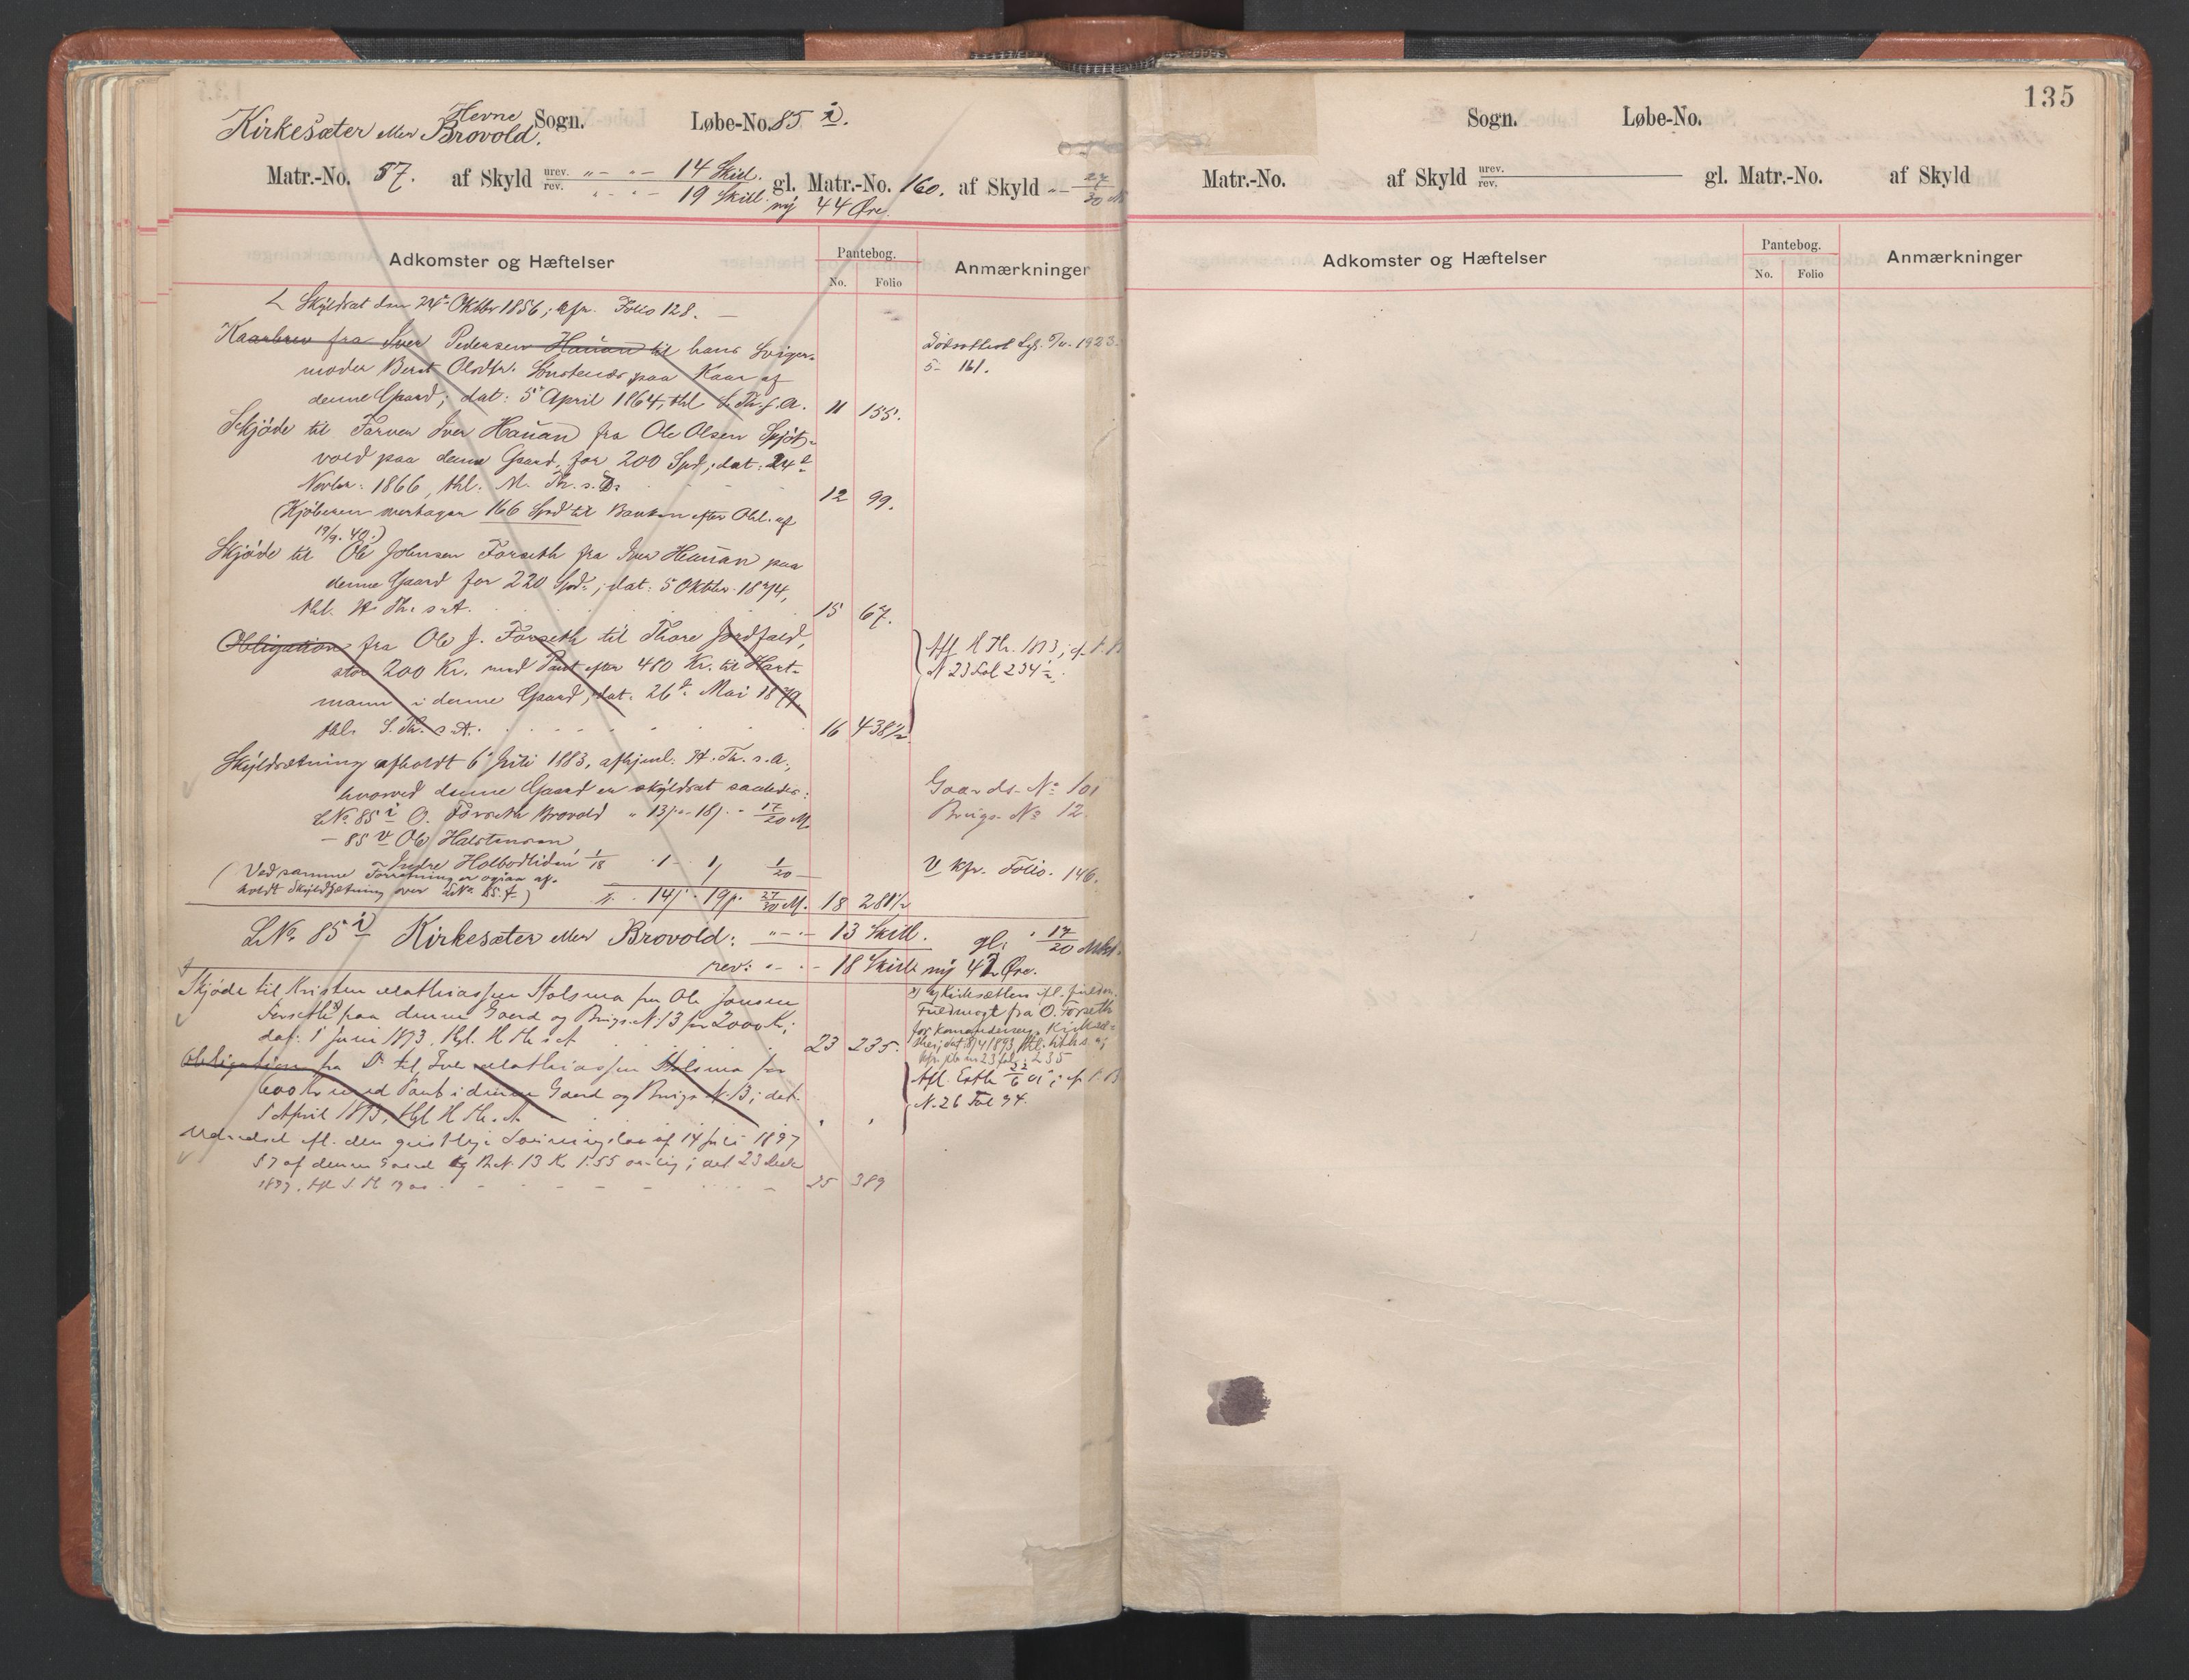 Kirkesæter eller Hevne Brovold. Sogn. Løbe-No. 85 i.
Matr.-No. 57. af Skyld urev. " - " - 14 Skill. rev. " - " - 19 Skill. gl. Matr.-No. 160. af Skyld " - 27/30 M
ny 44 Øre
Adkomster og Hæftelser
Pantebog.
No. Folio
Anmærkninger
Skyldsat den 24de Oktbr 1856; kfr. Folio 128.
Kaarbrev fra Iver Pedersen Hauan til hans Sviger-
moder Berit Olsdtr. paa Kaar af
denne Gaard; dat: 5te April 1864, thl S. Th. s. A. 11 155.
Skjøde til Farver Iver Hauan fra Ole Olsen Spjøt-
vold paa denne Gaard, for 200 Spd; dat: 24de
Novbr. 1866, thl. M. Th. s. 12 99.
(Kjøberen overtager 166 Spd til Banken efter Obl. af
19/9. 40.)
Skjøde til Ole Johnsen Forseth fra Iver Hauan paa
denne Gaard for 220 Spd.; dat: 5 Oktbr. 1874,
thl. H. Th. s. A. 15 67.
Obligation fra Ole J. Forseth til Thore Jordfald,
stor 200 Kr. med Pant efter 480 Kr. til Hart-
mann i denne Gaard; dat. 26de Mai 1879.
thl. S. Th. s. A. 16 438½
Skyldsætning afholdt 6te Juli 1883, afhjml. H. Th. s. A.,
hvorved denne Gaard er skyldsat saaledes:
LNo 85 i O. Forseth Brovold " 13 s. - 18 s. - 17/20 M.
- 85 v Ole Halstensen
Endre Holbodliden 1/18 . 1 - . 1 1/20 -
(Ved samme Forretning er ogsaa af-
holdt Skyldsætning over LNo. 85. f.) 14 s. 19 s. 27/30 M. 18 281½
LNo. 85 i Kirkesæter eller Brovold: " - " - 13 Skill. gl. " 17/20 Mrk.
rev: " - " - 18 Skill. ny 42 Øre.
Skjøde til Kristen Mathiassen Stolsmo fra Ole Jonsen
Forseth x) paa denne Gaard og Brugs-N. 13 for 2000 Kr;
dat: 1 Juni 1893, thgl. H. Th. s. A 23 235.
Obligation fra Do til Iver Mathiassen Stolsmo for
600 Kr med Pant i denne Gaard og Brugs N. 13; dat.
5 April 1893, thgl H. th. A " "
Udredsel efl. den geistlige Loniningslov af 14 Juli 1897
§ 7 af denne Gaard og B.N. 13 Kr 1.55 aarlig; dat 23 Decbr
1897, thl S. Th 25 389
Dødsattest 1923.
5- 161.
Afl. H Th. 1893; cf. P. B
N 23 Fol 234½.
Gaards-No 101
Brugs-No 12.
v kfr. Folio. 146.
x) efl.
Fuldmagt fra O. Forseth
dat 8/4 1893, thl. H.th.s a;
kfr. pb no 23 fol. 235
Afl. Exth 22/6 01; cf P. B
N. 26 Fol 94.
135
Sogn. Løbe-No.
Matr.-No. af Skyld urev. rev. gl. Matr.-No. af Skyld
Adkomster og Hæftelser
Pantebog.
No. Folio
Anmærkninger